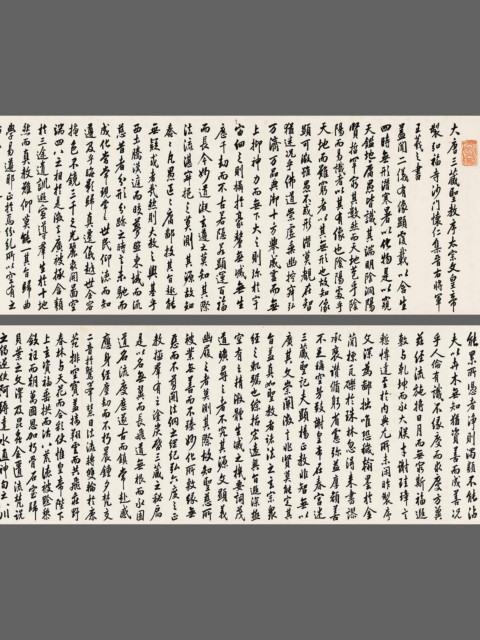 大唐三藏聖教序太宗文皇帝
製弘福寺沙門懷仁集晉右將軍
王羲之書
蓋聞二儀有像顯覆載以含生
四時無形潛寒暑以化物是以窺
天鑑地庸愚皆識其端明陰洞陽
賢哲罕窮其數然而天地苞乎陰
陽而易識者以其有像也陰陽處乎
天地而難窮者以其無形也故知像
顯可徵雖愚不惑形潛莫覩在智
猶迷況乎佛道崇虛乘幽控寂弘
濟萬品典御十方舉威靈而無
上抑神力而無下大之則弥於宇
宙細之則攝於豪釐無滅無生
歷千劫而不古若隱若顯運百福
而長今妙道凝玄遵之莫知其際
法流湛寂挹之莫測其源故知
蠢蠢凡愚區區庸鄙投其旨趣能
無疑或者哉然則大教之興基乎
西土騰漢庭而皎夢照東域而流
慈昔者分形分跡之時言未馳而
成化當常現常之世民仰德而知
遵及乎晦影歸真遷儀越世金容
掩色不鏡三千之光麗象開圖空
端四八之相於是微言廣被拯含類
於三途遺訓遐宣導群生於十地
然而真教難仰莫能一其旨歸曲
學易遵邪正於焉紛糺所以空有之
能累所憑者淨則濁類不能沾
夫以卉木無知猶資善而成善況
乎人倫有識不緣慶而求慶方冀
茲經流施將日月而無窮斯福遐
敷與乾坤而永大朕才謝珪璋言
慙博達至於內典尤所未閑昨製序
文深為鄙拙唯恐穢翰墨於金
簡標瓦礫於珠林忽得來書謬
承褒讚循躬省慮弥益厚顏善
不足稱空勞致謝皇帝在春宮述
三藏聖記夫顯揚正教非智無以
廣其文崇闡微言非賢莫能定其
旨蓋真如聖教者諸法之玄宗眾
經之軌躅也綜括宏遠奧旨遐深極
空有之精微體生滅之機要詞茂
道曠尋之者不究其源文顯義
幽履之者莫測其際故知聖慈所
被業無善而不臻妙化所敷緣無
惡而不翦開法網之綱紀弘六度之正
教拯群有之塗炭啟三藏之秘扃
是以名無翼而長飛道無根而永固
道名流慶歷遂古而鎮常赴感
應身經塵劫而不朽晨鐘夕梵交
二音於鷲峯慧日法流轉雙輪於鹿
菀排空寶蓋接翔雲而共飛莊野
春林與天花而合彩伏惟皇帝陛下
上玄資福垂拱而治八荒德被黔黎
斂衽而朝萬國恩加朽骨石室歸
貝葉之文澤及昆蟲金匱流梵說
之偈遂使阿耨達水通神甸之八川